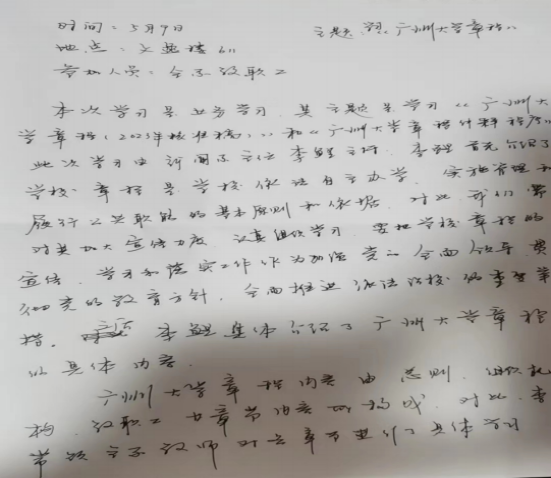 时间：5月9日 主题：学习《广州大学章程》
地点：文逸楼611
参加人员：全系教职工
本次学习是业务学习，其主题是学习《广州大
学章程（2023年核准稿）》和《广州大学章程
此次学习由新闻系主任李鲤主持。李鲤首先介绍了
学校章程是学校依法自主办学、实施管理和
履行公共职能的基本原则和依据。对此，我们需
对其加大宣传力度，认真组织学习，要把学校章程的
宣传、学习和落实工作作为加强党的全面领导、贯
彻党的教育方针、全面推进依法治校的重要举
措。李鲤具体介绍了广州大学章程
的具体内容。
广州大学章程内容由总则、组织机
构、教职工 章节内容所构成。对此，李
带领全系教师对各章节进行了具体学习